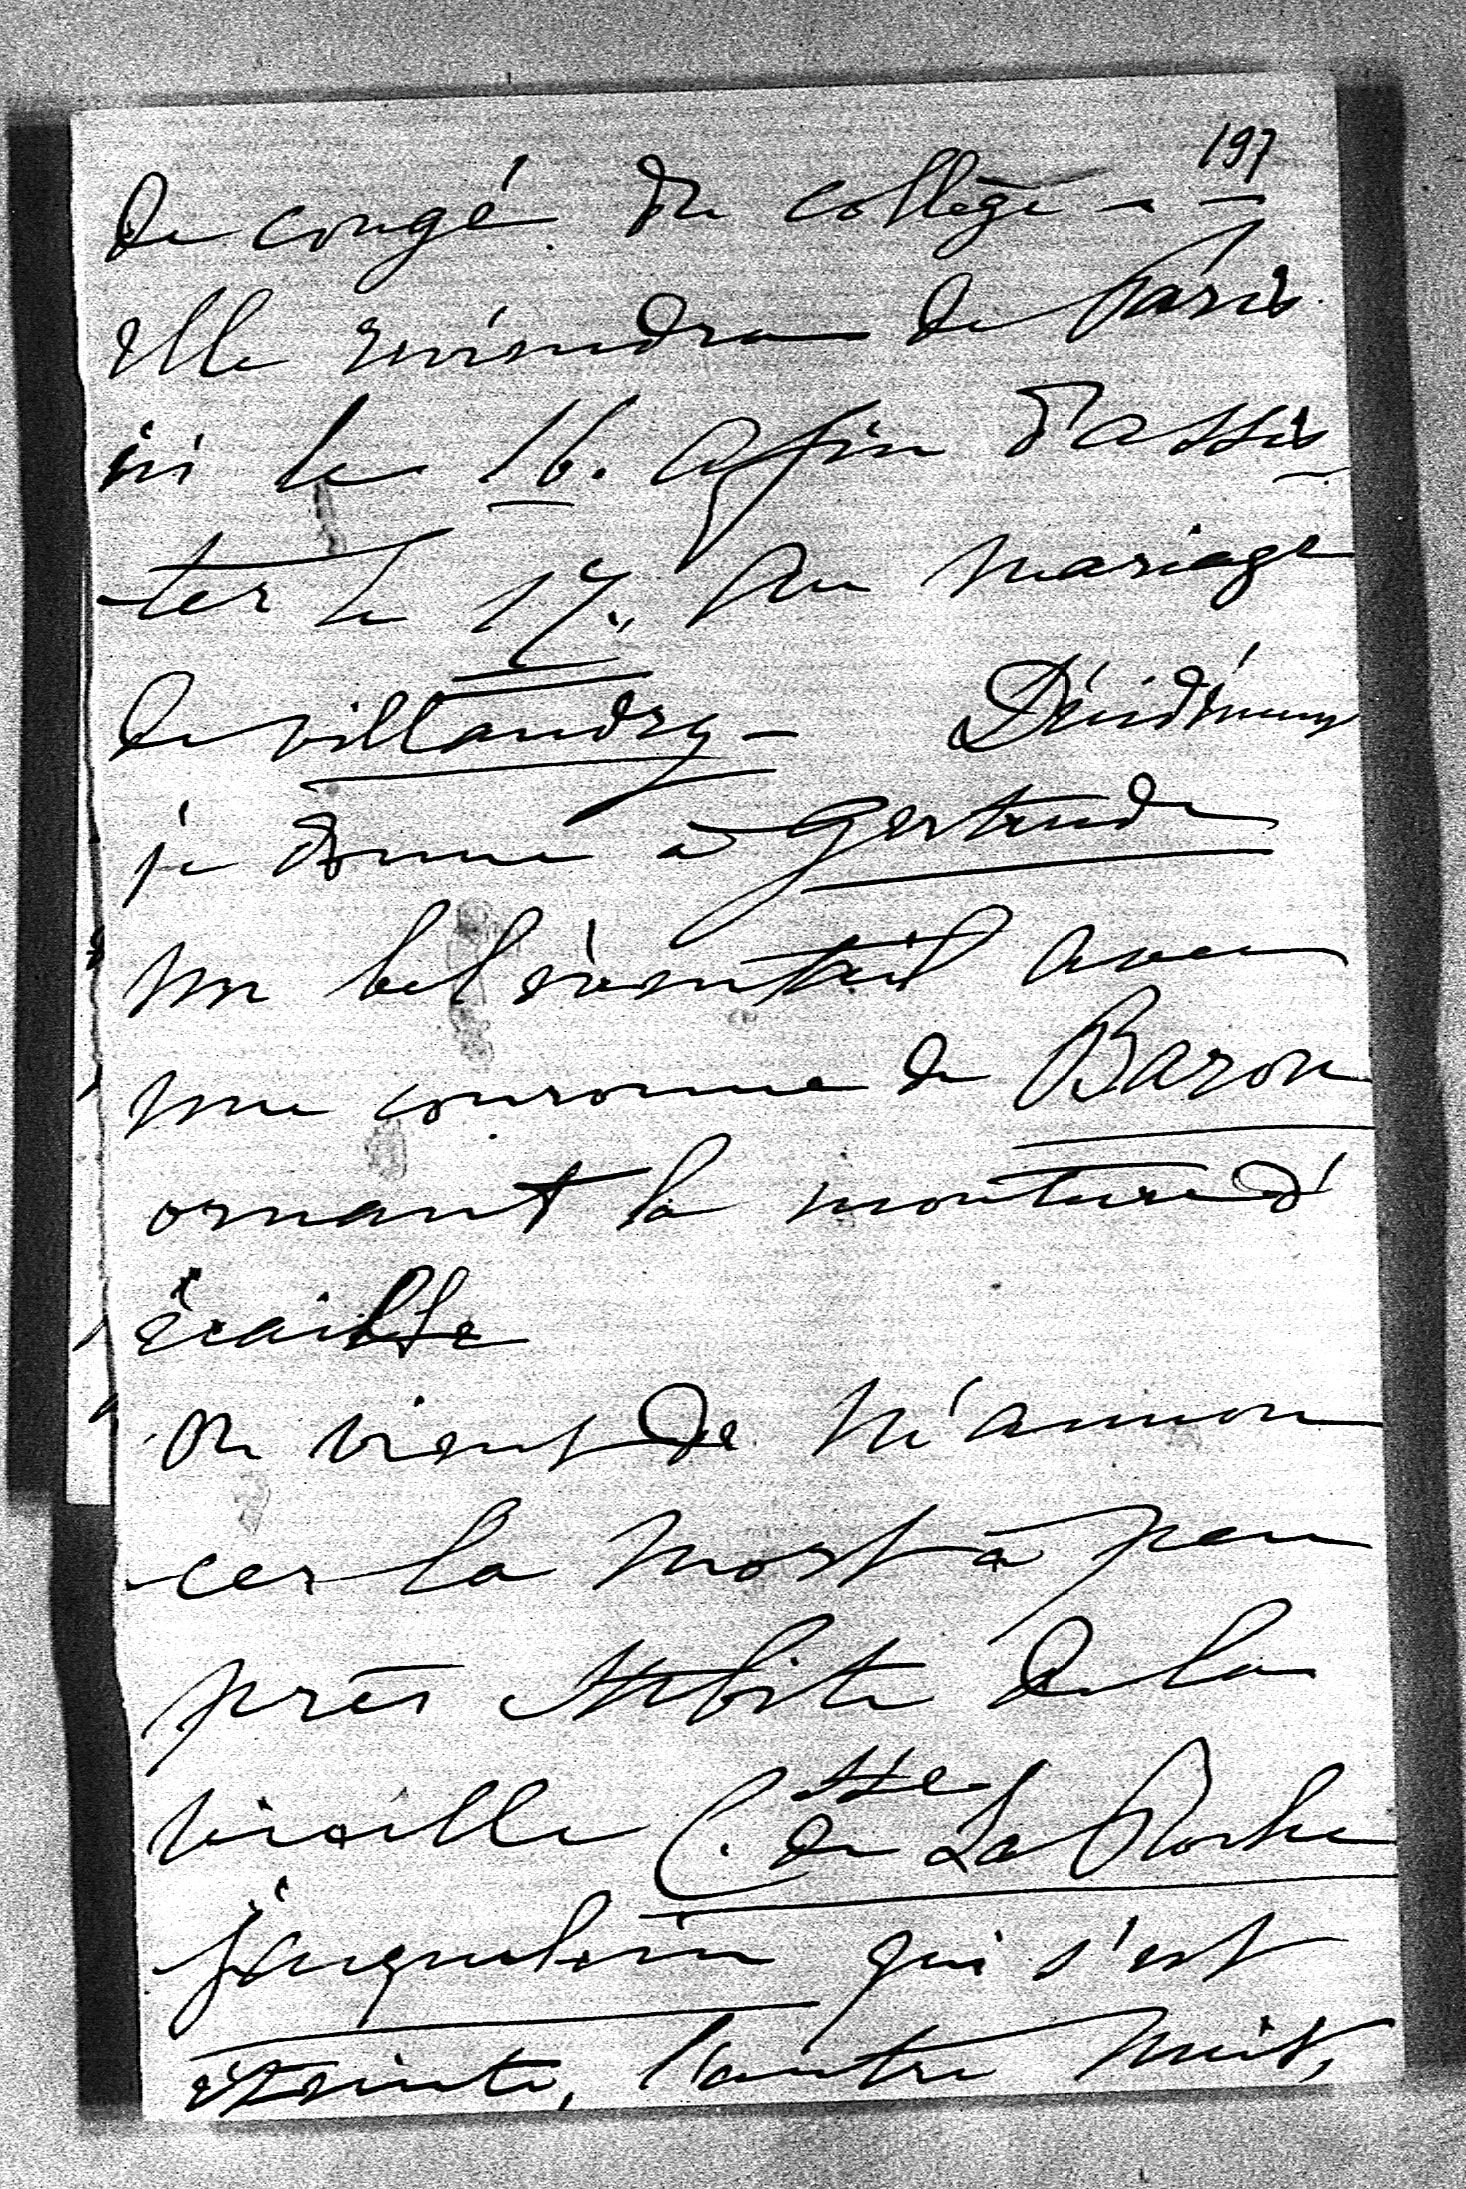 197
de congé du collège - -
elle reviendra de Paris
ici le 16. afin d'assis
ter le 17. au mariage
de Villandry - Décidément
je donne à Gertrude
un bel éventail avec
une couronne de Baron
ornant la monture d'
écaille
On vient de m'annon
cer la mort à peu
près subite de la
vieille C.sse de La Roche
jaquelein qui s'est
éteinte, l'autre nuit,